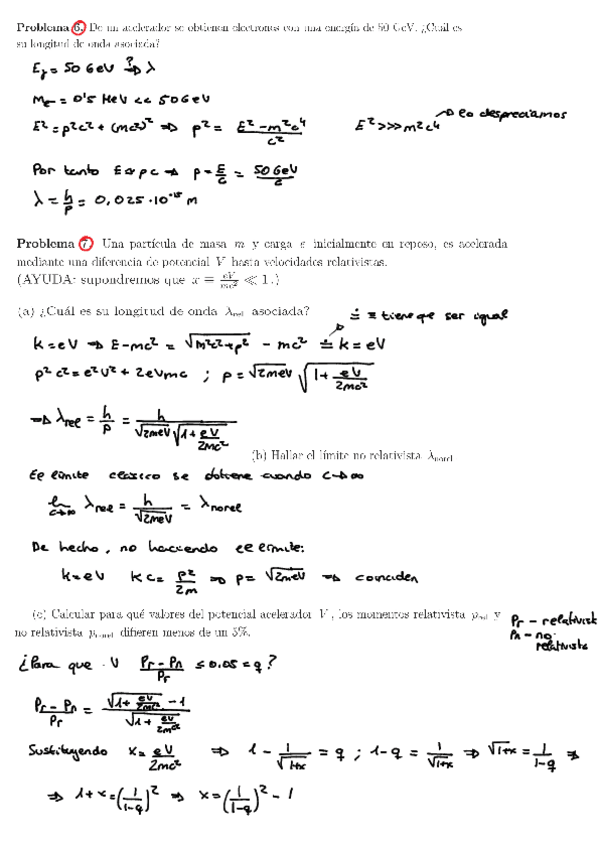 Problema 6. De un acelerador se obtienen electrones con una energía de 50 GeV. ¿Cuál es
su longitud de onda asociada?
E_T = 50 GeV ?⇒ λ
m_e- = 0'5 MeV << 50 GeV
E² = p²c² + (mc²)² ⇒ p² = (E² - m²c⁴)/c² E² >>> m²c⁴ → lo despreciamos
Por tanto E ≈ pc → p = E/c = 50 GeV/c
λ = h/p = 0,025·10⁻¹⁵ m
Problema 7. Una partícula de masa m y carga e inicialmente en reposo, es acelerada
mediante una diferencia de potencial V hasta velocidades relativistas.
(AYUDA: supondremos que x ≡ eV/mc² ≪ 1.)
(a) ¿Cuál es su longitud de onda λ_rel asociada?
≐ ≡ tiene que ser igual
k = eV ⇒ E - mc² = √(m²c²+p²) - mc² ≐ k = eV
p²c² = e²V² + 2eVmc ; p = √(2meV) √(1 + eV/2mc²)
⇒ λ_rel = h/p = h/(√(2meV) √(1 + eV/2mc²))
(b) Hallar el límite no relativista λ_norel
El límite clásico se obtiene cuando c→∞
lim c→∞ λ_rel = h/√(2meV) = λ_norel
De hecho, no haciendo el límite:
k = eV KC = p²/2m ⇒ p = √(2meV) ⇒ coinciden
(c) Calcular para qué valores del potencial acelerador V, los momentos relativista p_rel y
no relativista p_norel difieren menos de un 5%.
Pr - relativista
Pn - no
relativista
¿Para que V (Pr - Pn)/Pr ≤ 0.05 = q?
(Pr - Pn)/Pr = (√(1 + eV/2mc²) - 1)/√(1 + eV/2mc²)
Sustituyendo x = eV/2mc² ⇒ 1 - 1/√(1+x) = q ; 1-q = 1/√(1+x) ⇒ √(1+x) = 1/(1-q) ⇒
⇒ 1+x = (1/(1-q))² ⇒ x = (1/(1-q))² - 1